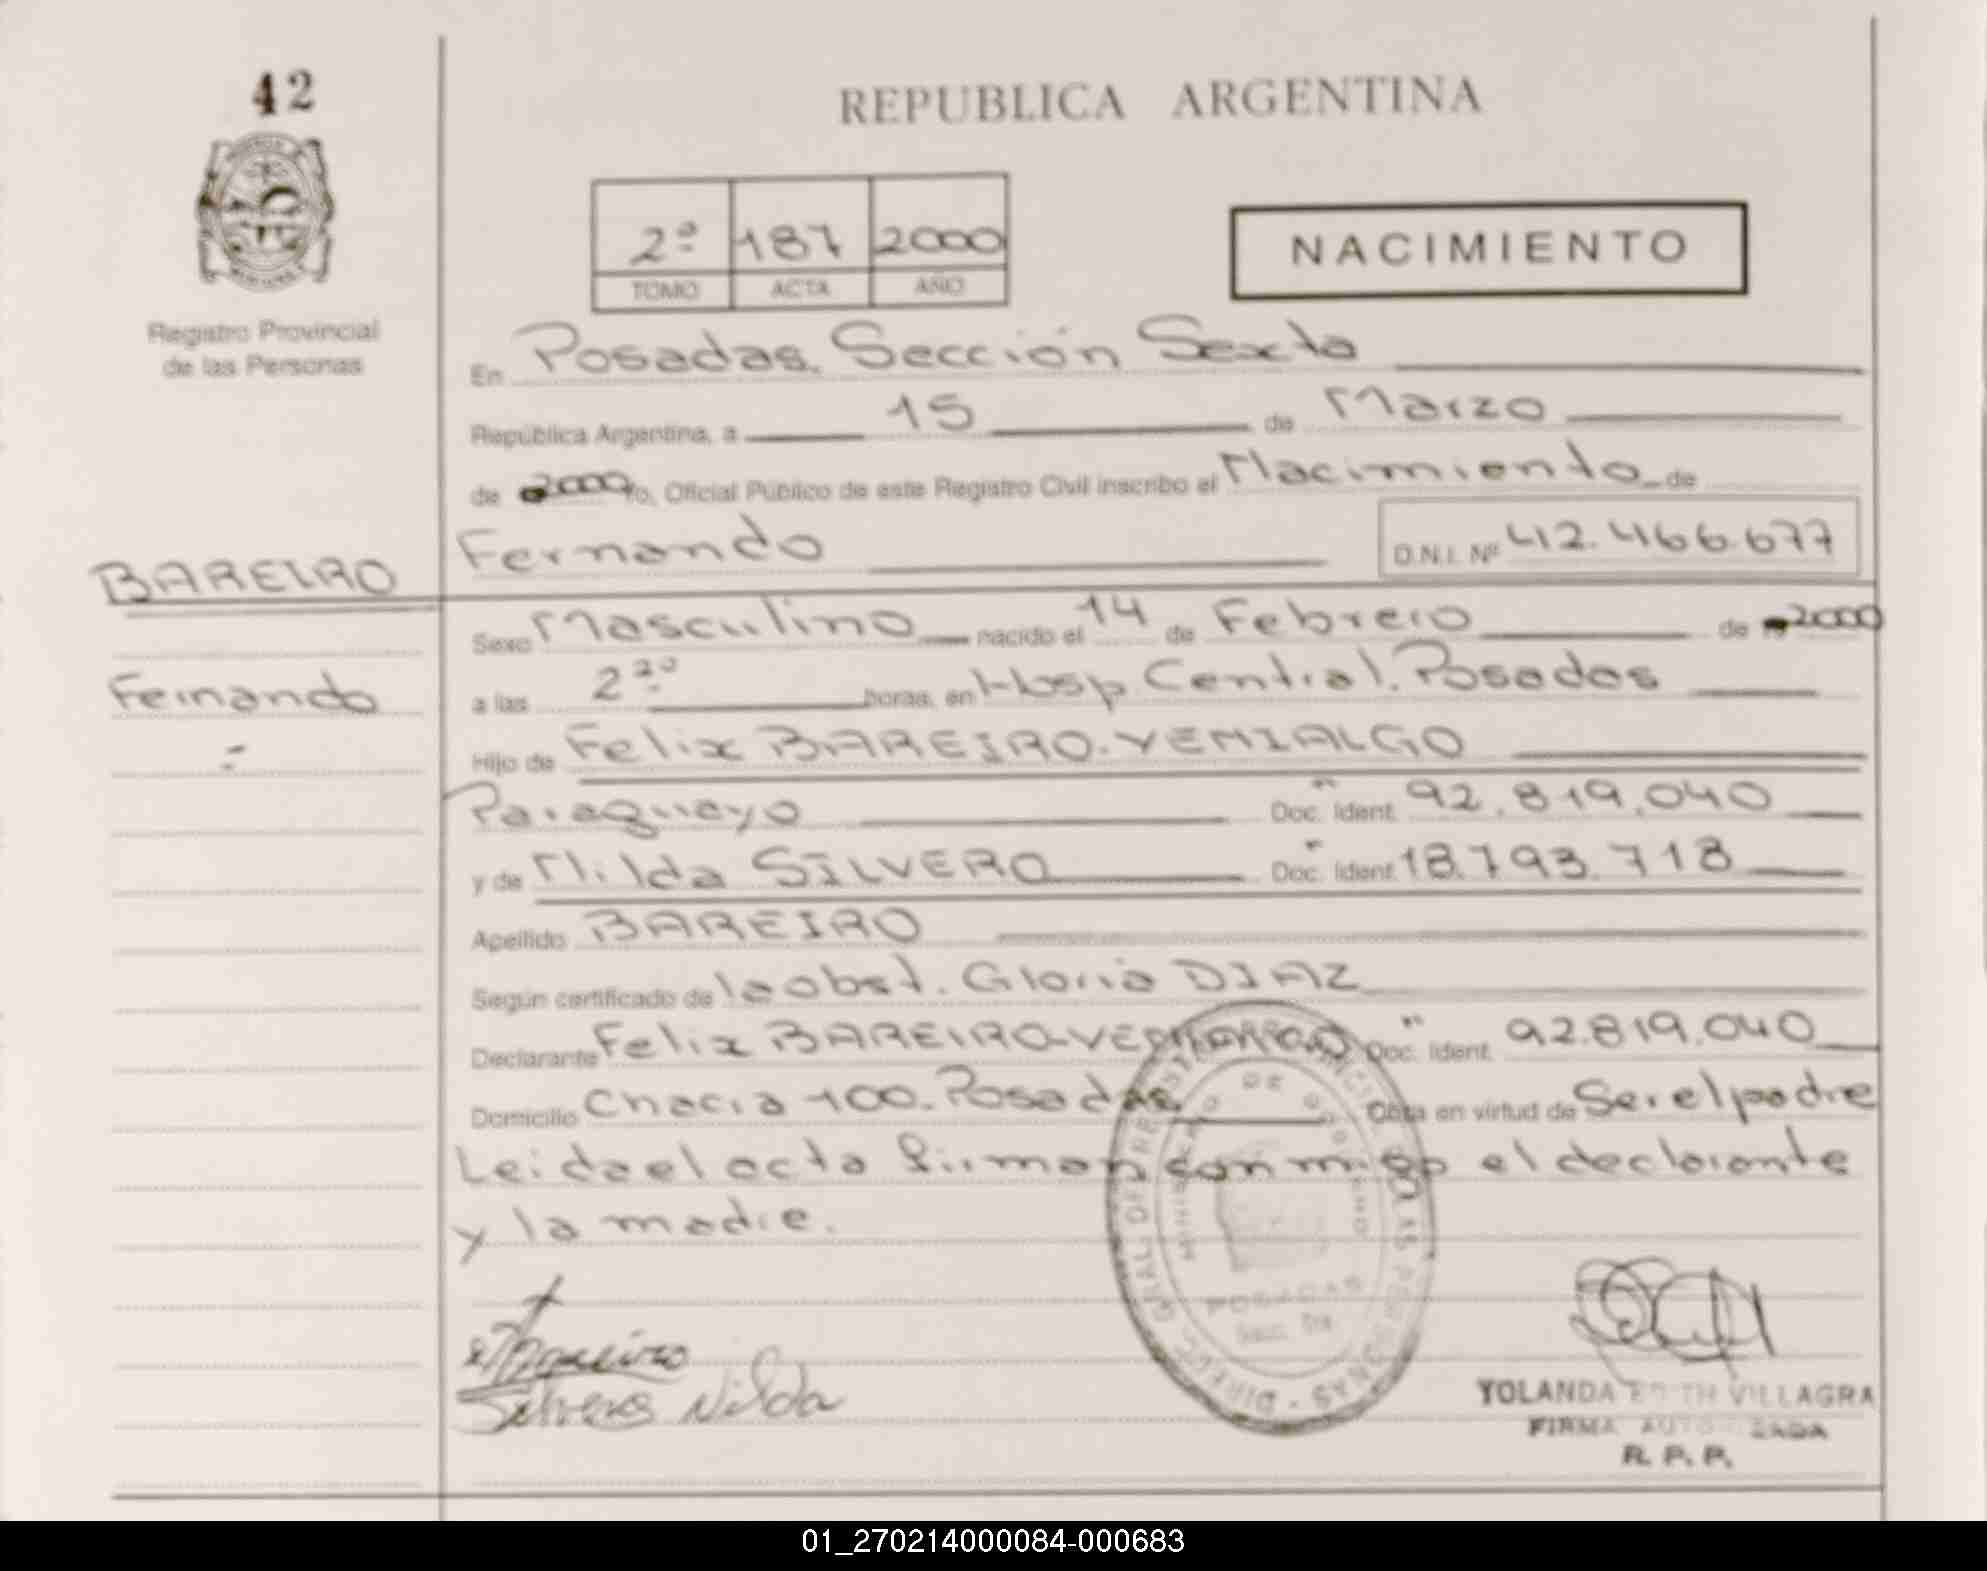 42
REPUBLICA ARGENTINA
2º 187 2000
TOMO ACTA AÑO
NACIMIENTO
Registro Provincial
de las Personas
En Posadas. Sección Sexta
República Argentina, a 15 de Marzo
de 2000 yo, Oficial Público de este Registro Civil inscribo el Nacimiento de
BAREIRO Fernando D.N.I. Nº 42.466.677
Sexo Masculino nacido el 14 de Febrero de 2000
Fernando
a las horas, en Hosp. Central. Posadas
Hijo de Felix BAREIRO-VENIALGO
Paraguayo Doc. Ident. 92.819.040
y de Nilda SILVERO Doc. Ident. 18.793.718
Apellido BAREIRO
Según certificado de la obst. Gloria DIAZ
Declarante Felix BAREIRO-VENIALGO Doc. Ident. 92.819.040
Domicilio Chacra 100. Posadas Obra en virtud de Ser el padre
Leida el acta firman conmigo el declarante
y la madre.
DIREC. GRAL. DEL REGISTRO PROVINCIAL DE LAS PERSONAS
MINISTERIO DE GOBIERNO
POSADAS
Bareiro
Silvero Nilda
YOLANDA EDITH VILLAGRA
FIRMA AUTORIZADA
R. P. P.
01_270214000084-000683